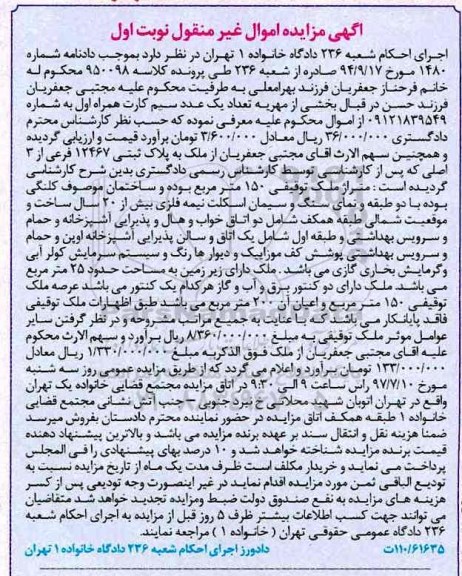 آگهی مزایده اموال غیر منقول نوبت اول
اجرای احکام شعبه ۲۳۶ دادگاه خانواده ۱ تهران در نظر دارد بموجب دادنامه شماره
۱۴۸۰ مورخ ۹۴/۹/۱۷ صادره از شعبه ۲۳۶ طی پرونده کلاسه ۹۵۰۰۹۸ محکوم له
خانم فرحناز جعفریان فرزند بهرامعلی به طرفیت محکوم علیه مجتبی جعفریان
فرزند حسن در قبال بخشی از مهریه تعداد یک عدد سیم کارت همراه اول به شماره
۰۹۱۲۱۸۳۹۵۴۹ از اموال محکوم علیه معرفی نموده که حسب نظر کارشناس محترم
دادگستری ۳۶/۰۰۰/۰۰۰ ریال معادل ۳/۶۰۰/۰۰۰ تومان برآورد قیمت و ارزیابی گردیده
و همچنین سهم الارث آقای مجتبی جعفریان از ملک به پلاک ثبتی ۱۲۴۶۷ فرعی از ۳
اصلی که پس از کارشناسی توسط کارشناس رسمی دادگستری بدین شرح کارشناسی
گردیده است : متراژ ملک توقیفی ۱۵۰ متر مربع بوده و ساختمان موصوف کلنگی
بوده با دو طبقه و نمای سنگ و سیمان اسکلت نیمه فلزی بیش از ۲۰ سال ساخت و
موقعیت شمالی طبقه همکف شامل دو اتاق خواب و هال و پذیرایی آشپزخانه و حمام
و سرویس بهداشتی و طبقه اول شامل یک اتاق و سالن پذیرایی آشپزخانه اوپن و حمام
و سرویس بهداشتی پوشش کف موزاییک و دیوار ها رنگ و سیستم سرمایش کولر آبی
وگرمایش بخاری گازی می باشد . ملک دارای زیر زمین به مساحت حدود ۲۵ متر مربع
می باشد. ملک دارای دو کنتور برق و آب و گاز هرکدام یک کنتور می باشد عرصه ملک
توقیفی ۱۵۰ متر مربع و اعیان آن ۲۰۰ متر مربع می باشد طبق اظهارات ملک توقیفی
فاقد پایانکار می باشد که با عنایت به جمیع مراتب مشروحه و در نظر گرفتن سایر
عوامل موثر ملک توقیفی به مبلغ ۸/۳۶۰/۰۰۰/۰۰۰ ریال برآورد و سهم الارث محکوم
علیه آقای مجتبی جعفریان از ملک فوق الذکربه مبلغ ۱/۳۳۰/۰۰۰/۰۰۰ ریال معادل
۱۳۳/۰۰۰/۰۰۰ تومان برآورد و اعلام می گردد که از طریق مزایده عمومی روز سه شنبه
مورخ ۹۷/۷/۱۰ راس ساعت ۹ الی ۹:۳۰ در اتاق مزایده مجتمع قضایی خانواده یک تهران
واقع در تهران اتوبان شهید محلاتی خ نبرد جنوبی - جنب آتش نشانی مجتمع قضایی
خانواده ۱ طبقه همکف اتاق مزایده در حضور نماینده محترم دادستان بفروش میرسد
ضمنا هزینه نقل و انتقال سند بر عهده برنده مزایده می باشد و بالاترین پیشنهاد دهنده
قیمت برنده مزایده شناخته خواهد شد و ۱۰ درصد بهای پیشنهادی را فی المجلس
پرداخت می نماید و خریدار مکلف است ظرف مدت یک ماه از تاریخ مزایده نسبت به
تودیع الباقی ثمن مورد مزایده اقدام نماید در غیر اینصورت وجه تودیعی پس از کسر
هزینه های مزایده به نفع صندوق دولت ضبط ومزایده تجدید خواهد شد متقاضیان
می توانند جهت کسب اطلاعات بیشتر ظرف ۵ روز قبل از مزایده به اجرای احکام شعبه
۲۳۶ دادگاه عمومی حقوقی تهران ( خانواده ۱ ) مراجعه نمایند.
۱۱۰/۶۱۶۳۵ت
دادورز اجرای احکام شعبه ۲۳۶ دادگاه خانواده ۱ تهران